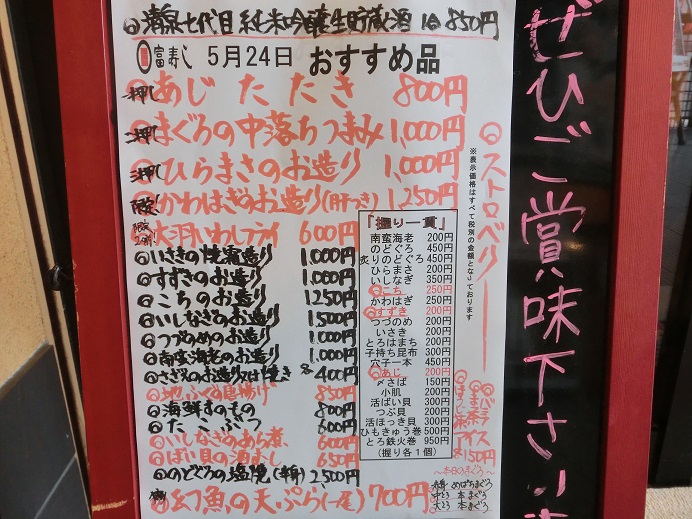 清泉七代目 純米吟醸生貯蔵酒 1合 850円
富寿し 5月24日 おすすめ品
一押し あじたたき 800円
二押し まぐろの中落ちつまみ 1,000円
三押し ひらまさのお造り 1,000円
限定! かわはぎのお造り(肝つき) 1,250円
大羽いわしフライ 600円
いさきの焼霜造り 1,000円
すずきのお造り 1,000円
こちのお造り 1250円
いしなぎのお造り 1,500円
つづのめのお造り 1,000円
南蛮海老のお造り 1,000円
さざえのお造り又はつぼ焼き 400円
地ふぐの唐揚げ 850円
海鮮すのもの 800円
たこぶつ 600円
いしなぎのあら煮 600円
ばい貝の酒むし 650円
のどぐろの塩焼(半身) 2,500円
幻魚の天ぷら(一尾) 700円
「握り一貫」
南蛮海老 200円
のどぐろ 450円
炙りのどぐろ 450円
ひらまさ 200円
いしなぎ 350円
こち 250円
かわはぎ 250円
すずき 200円
つづのめ 200円
いさき 200円
とろはまち 200円
子持ち昆布 300円
穴子一本 450円
あじ 200円
〆さば 150円
小肌 200円
活ばい貝 300円
つぶ貝 200円
活ほっき貝 300円
ひもきゅう巻 500円
とろ鉄火巻 950円
(握り各1個)
※表示価格はすべて税別の金額となっております
ストロベリー
バニラ
抹茶
ほうじ茶
アイス
各150円
〜本日のまぐろ〜
赤身 めばちまぐろ
中とろ 本まぐろ
大とろ 本まぐろ
ぜひご賞味下さい